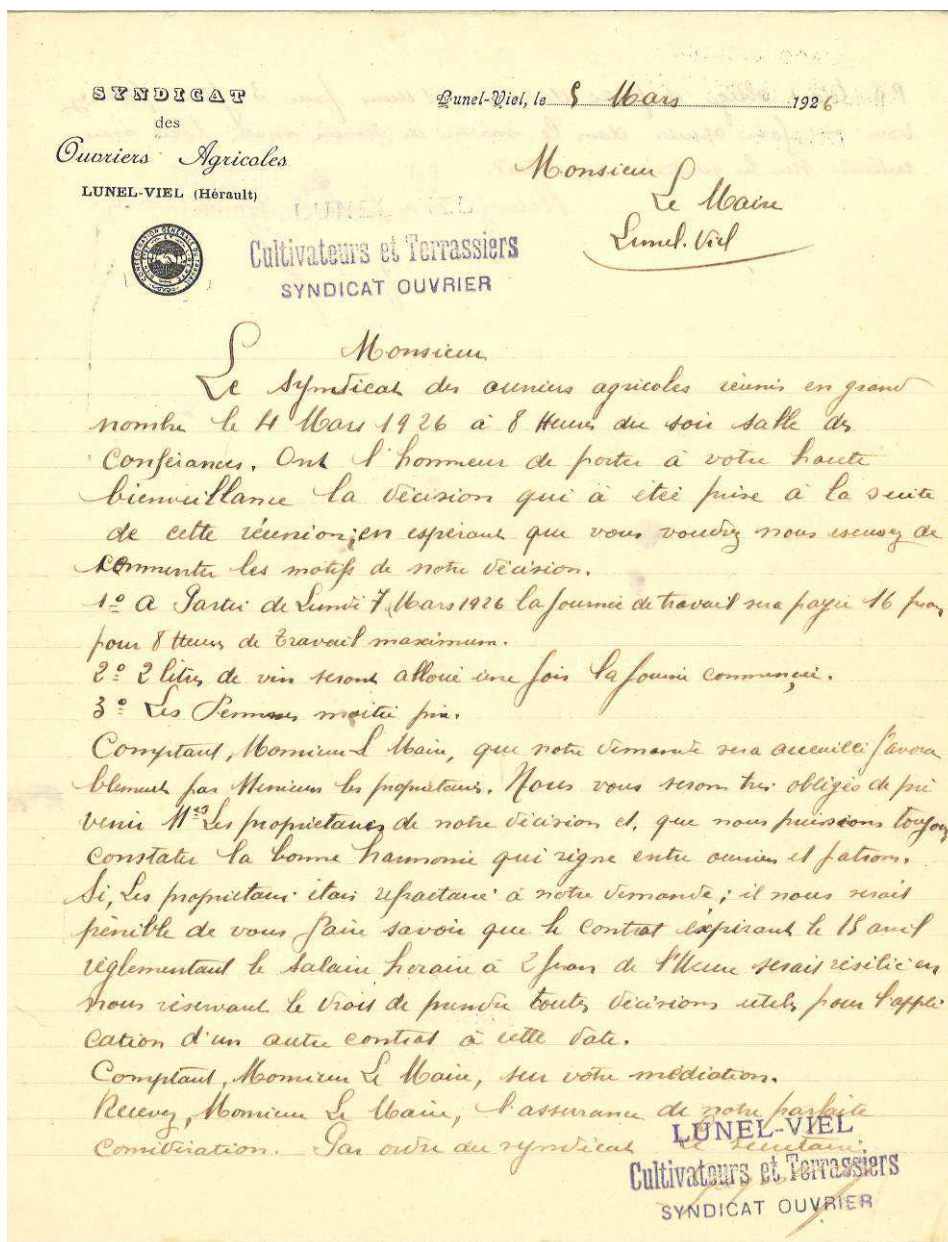 SYNDICAT
des
Ouvriers Agricoles
LUNEL-VIEL (Hérault)
Lunel-Viel, le 5 Mars 1926
Monsieur
Le Maire
Lunel-Viel
CONFÉDÉRATION GÉNÉRALE DU TRAVAIL
LUNEL-VIEL
Cultivateurs et Terrassiers
SYNDICAT OUVRIER
Monsieur
Le Syndicat des ouvriers agricoles réunis en grand
nombre le 4 Mars 1926 à 8 Heures du soir salle des
Conférances. Ont l'honneur de porter à votre haute
bienveillance la décision qui à étéé prise à la suite
de cette réunion; en espérant que vous voudrez nous excusez de
commenter les motifs de notre décision.
1º A Partir de Lundi 7 Mars 1926 la Journée de travail sera payée 16 frans
pour 8 Heures de travail maximum.
2º 2 litres de vin seront alloué une fois la Journée commençée.
3º Les Femmes moitié prix.
Comptant, Monsieur L Maire, que notre demande sera accueilli favora
blement par Messieurs les propriétaires. Nous vous serons très obligés de pré
venir Mrs Les propriétaires de notre décision et, que nous puissions toujours
constater la bonne harmonie qui règne entre ouvriers et patrons.
Si, Les propriétaires étais réfractaire à notre demande; il nous serait
pénible de vous faire savoir que le contrat éxpirant le 15 avril
réglementant le salaire horaire à 2 frans de l'Heure serait résilié en
nous réservant le droit de prendre toutes décisions utiles pour l'appli-
cation d'un autre contrat à cette date.
Comptant, Monsieur Le Maire, sur votre médiation.
Recevez, Monsieur Le Maire, l'assurance de notre parfaite
considération. Par ordre du syndicat Le secrétaire
LUNEL-VIEL
Cultivateurs et Terrassiers
SYNDICAT OUVRIER